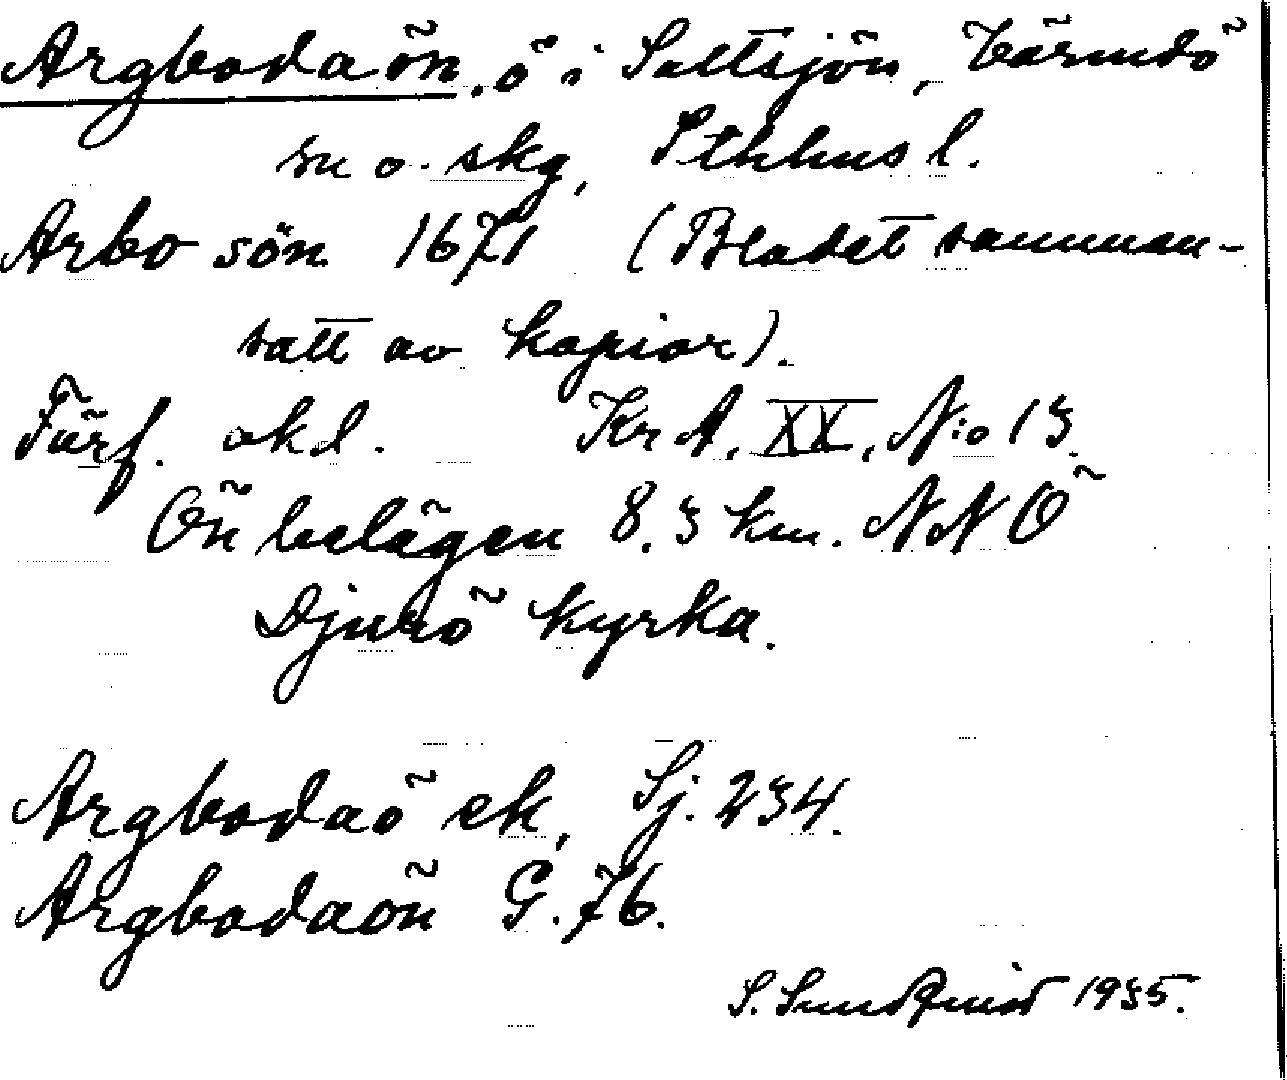 Argbodaön, ö i Saltsjön, Värmdö
sn o. skg, Sthlms l.
Arbo sön 1671 (Bladet samman-
satt av kopior).
Förf. okd. Kr A. XX, N:o 13.
Ön belägen 8.3 km. NNO
Djurö kyrka.
Argbodaö ek, Sj. 234.
Argbodaön G. 76.
S. Sundquist 1935.